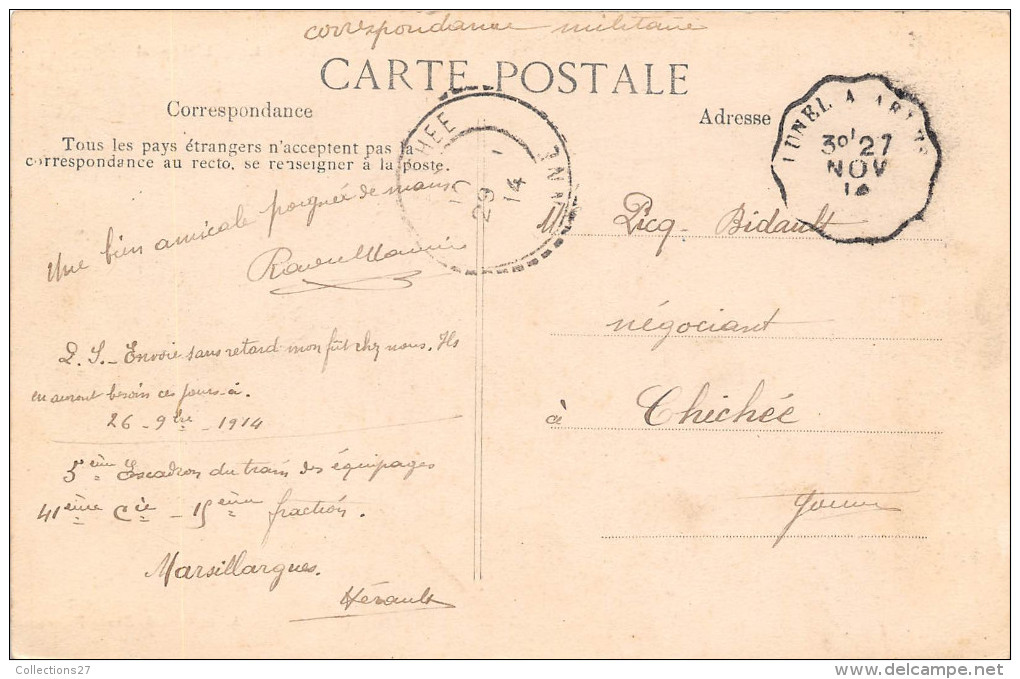 correspondance militaire
CARTE POSTALE
Correspondance
Adresse
Tous les pays étrangers n'acceptent pas la
correspondance au recto, se renseigner à la poste.
LUNEL A ARLES
30 27
NOV
14
CHICHEE
29
14
YONNE
Une bien amicale poignée de mains
P. S. - Envoie sans retard mon fût chez nous. Ils
en auront besoin ces jours-ci.
26 - 9bre - 1914
5ème Escadron du train des équipages
41ème Cie - 15ème fraction.
Marsillargues.
Hérault
M Picq-Bidault
négociant
à Chichée
Yonne
Collections27
delcampe.net